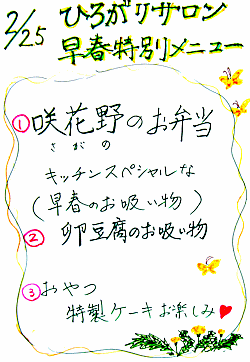 2/25
ひろがりサロン
早春特別メニュー
① 咲花野のお弁当
さがの
キッチンスペシャルな
(早春のお吸い物)
② 卵豆腐のお吸い物
③ おやつ
特製ケーキお楽しみ♥